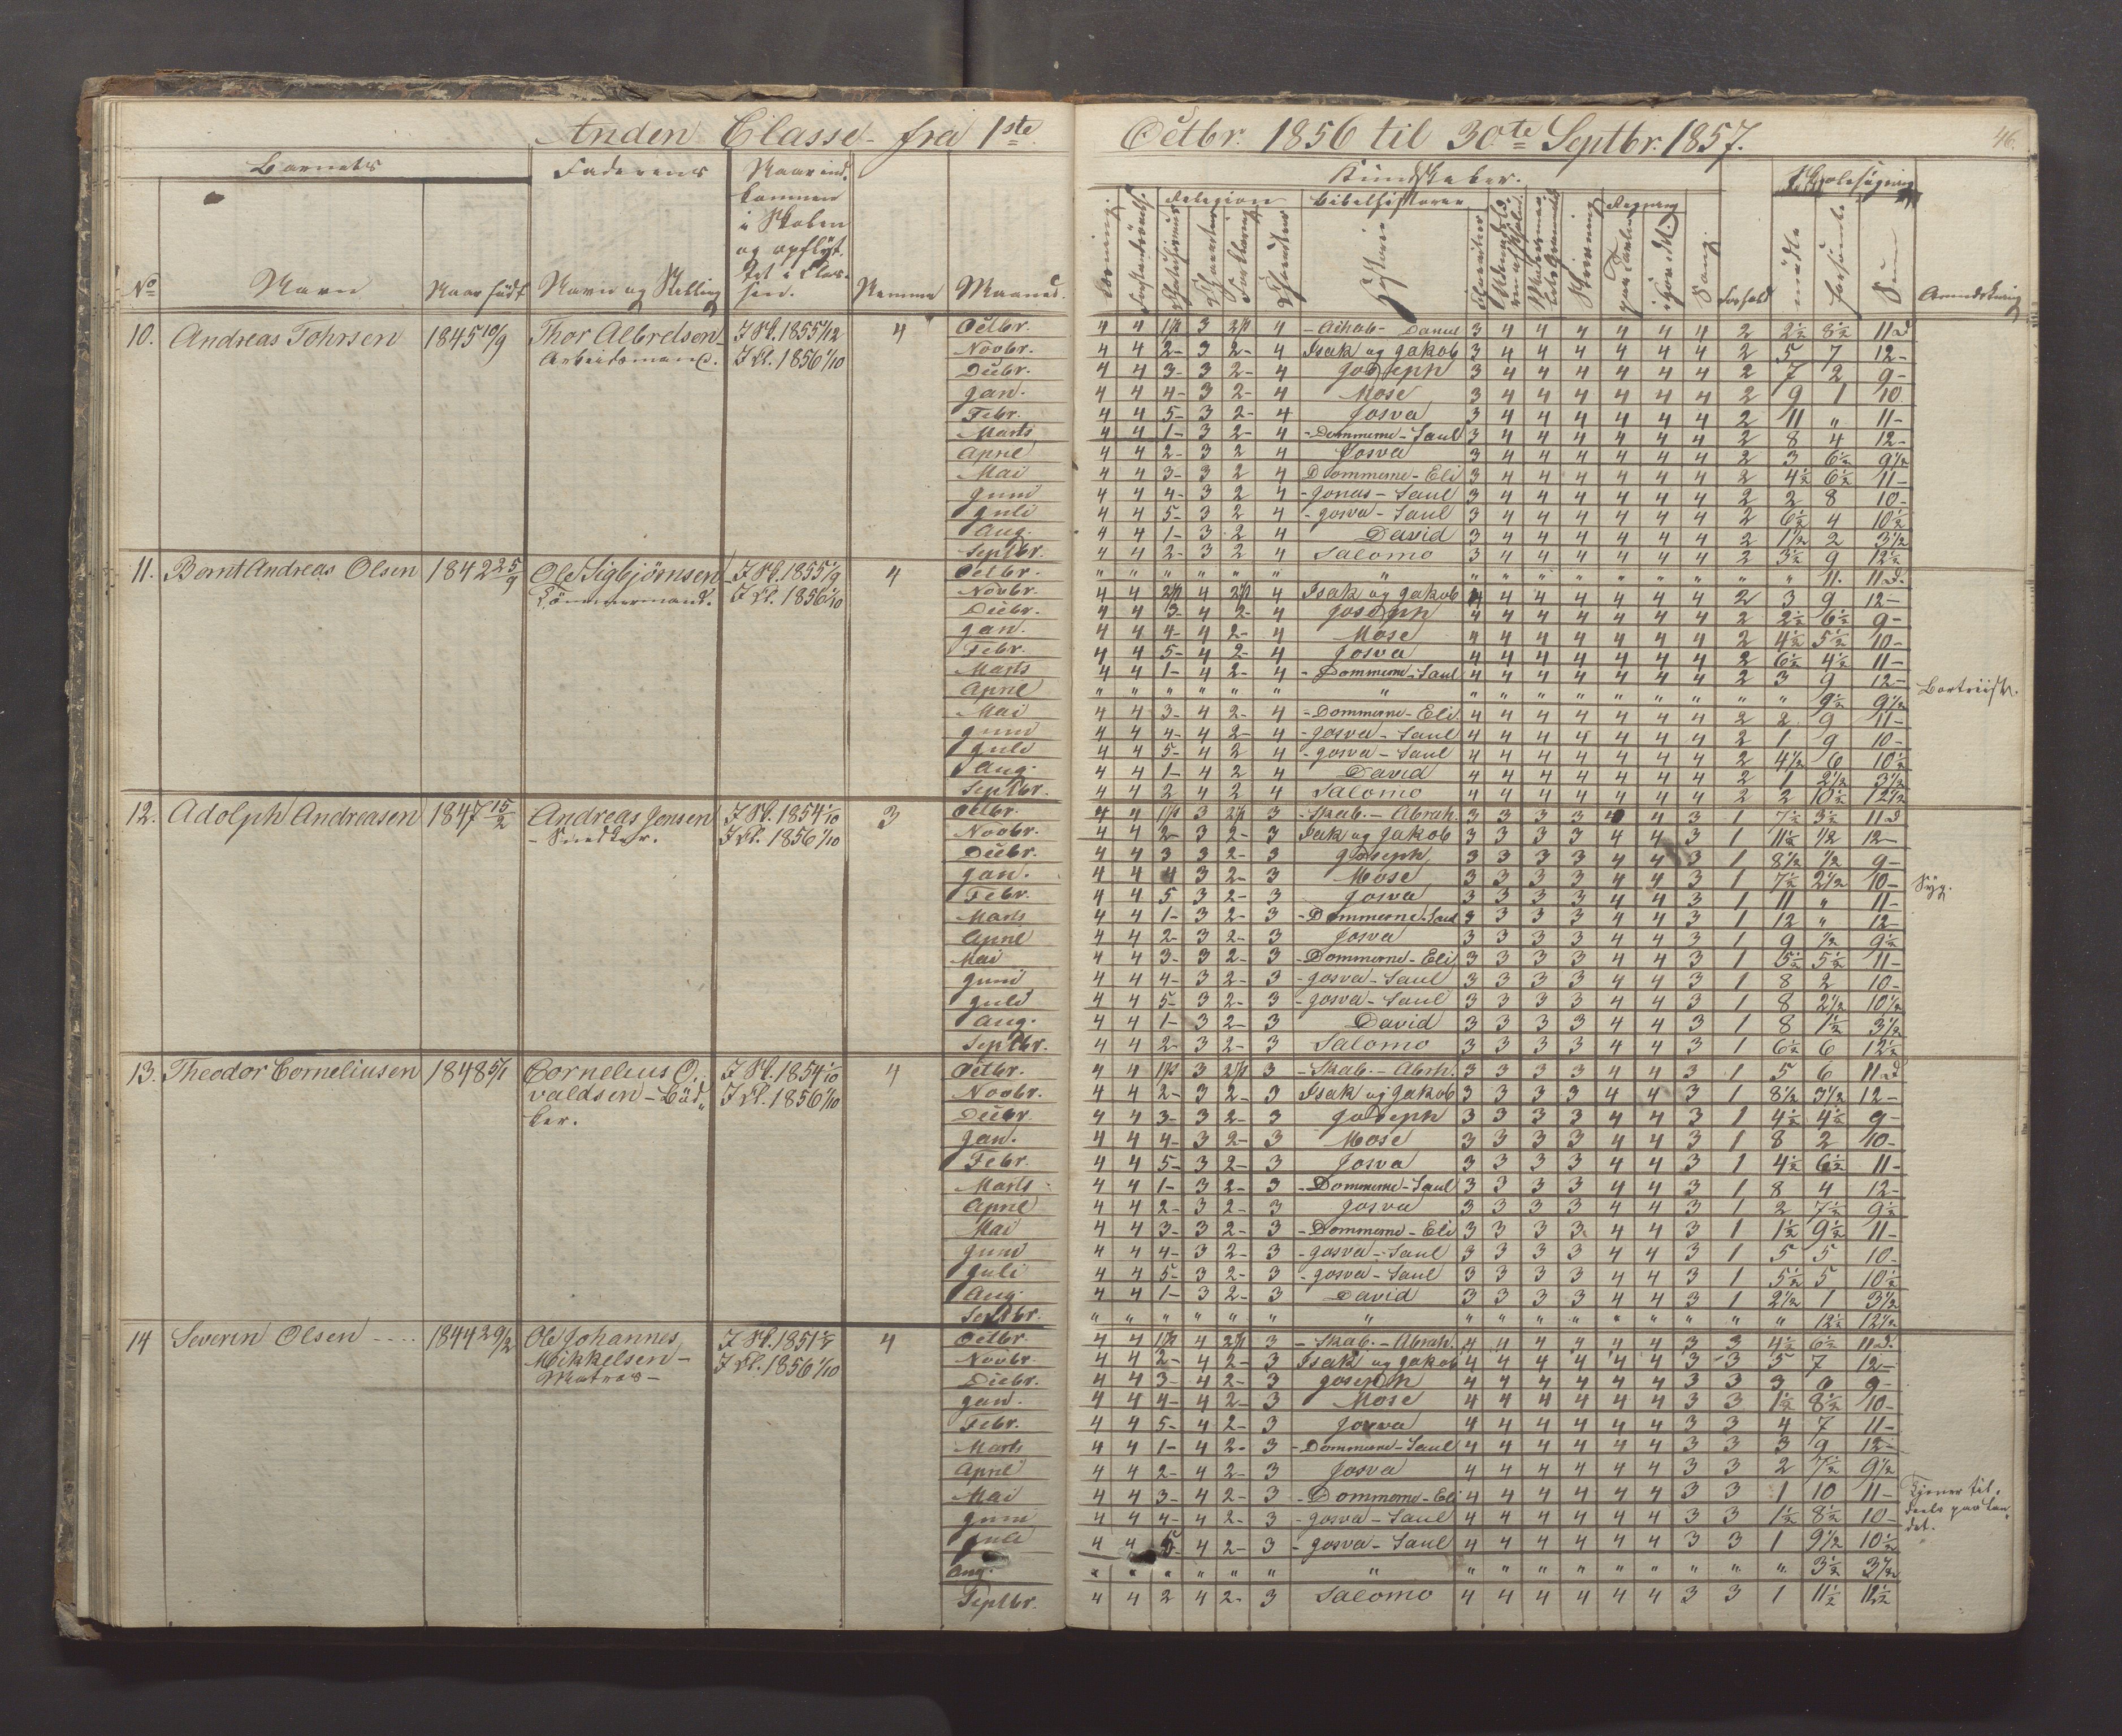 Anden Classe fra 1ste Octbr. 1856 til 30te Septbr. 1857.
46.
Barnets
Faderens
No
Navn
Naar født
Navn og Stilling
Naar ind-
kommen
i Skolen
og opflyt-
tet i Clas-
sen.
Nemme
Maaned.
Kundskaber.
Religion
Bibelhistorie
Historie
Skrivning
Regning
Sang
Forhold
Skolesøgning
mødte
forsømte
Sum
Anmærkning
10. Andreas Tohrsen 1845 10/9 Thor Albretsen I Sk. 1855 1/12 4
Arbeidsmand. I Kl. 1856 1/10
Octbr. 4 4 3 4 - Achab - Daniel 3 4 4 4 4 4 4 2 2½ 8½ 11 d
Novbr. 4 4 2- 3 2- 4 Isak og Jakob 3 4 4 4 4 4 4 2 5 7 12-
Decbr. 4 4 3- 3 2- 4 Joseph 3 4 4 4 4 4 4 2 7 2 9-
Jan. 4 4 4- 3 2- 4 Mose 3 4 4 4 4 4 4 2 9 1 10
Febr. 4 4 5- 3 2- 4 Josva 3 4 4 4 4 4 4 2 11 " 11-
Marts 4 4 1- 3 2- 4 - Dommerne - Saul 3 4 4 4 4 4 4 2 8 4 12-
April 4 4 2- 3 2 4 Josva 3 4 4 4 4 4 4 2 3 6½ 9½
Mai 4 4 3- 3 2 4 Dommerne - Eli 3 4 4 4 4 4 4 2 4½ 6½ 11-
Juni 4 4 4- 3 2 4 - Jonas - Saul 3 4 4 4 4 4 4 2 2 8 10-
Juli 4 4 5- 3 2 4 - Josva - Saul 3 4 4 4 4 4 4 2 6½ 4 10½
Aug. 4 4 1- 3 2 4 David 3 4 4 4 4 4 4 2 1½ 2 3½
Septbr. 4 4 2- 3 2 4 Salomo 3 4 4 4 4 4 4 2 3½ 9 12½
11. Bernt Andreas Olsen 1842 25/9 Ole Sigbjörnsen I Sk. 1855 1/9 4
Tömmermand. I Kl. 1856 1/10
Octbr. " " " " " " " " " " " " " " " " 11. 11 d.
Novbr. 4 4 4 4 Isak og Jakob 4 4 4 4 4 4 4 2 3 9 12-
Decbr. 4 4 3- 4 2- 4 Joseph 4 4 4 4 4 4 4 2 2½ 6½ 9-
Jan. 4 4 4- 4 2- 4 Mose 4 4 4 4 4 4 4 2 4½ 5½ 10-
Febr. 4 4 5- 4 2- 4 Josva 4 4 4 4 4 4 4 2 6½ 4½ 11-
Marts 4 4 1- 4 2- 4 - Dommerne - Saul 4 4 4 4 4 4 4 2 3 9 12-
April " " " " " " " " " " " " " " " " 9½ 9½ Bortreist.
Mai 4 4 3- 4 2- 4 - Dommerne - Eli 4 4 4 4 4 4 4 2 2 9 11-
Juni 4 4 4- 4 2- 4 - Josva - Saul 4 4 4 4 4 4 4 2 1 9 10-
Juli 4 4 5- 4 2 4 - Josva - Saul 4 4 4 4 4 4 4 2 4½ 6 10½
Aug. 4 4 1- 4 2 4 David 4 4 4 4 4 4 4 2 1 2½ 3½
Septbr. 4 4 2 4 2 4 Salomo 4 4 4 4 4 4 4 2 2 10½ 12½
12. Adolph Andreasen 1847 15/2 Andreas Jensen I Sk. 1854 1/10 3
- Snedker. I Kl. 1856 1/10
Octbr. 4 4 3 3 - Skab. - Abrah. 3 3 3 3 4 4 3 1 7½ 3½ 11 d
Novbr. 4 4 2- 3 2- 3 Isak og Jakob 3 3 3 3 4 4 3 1 11½ ½ 12-
Decbr. 4 4 3 3 2- 3 Joseph 3 3 3 3 4 4 3 1 8½ ½ 9-
Jan. 4 4 4 3 2- 3 Mose 3 3 3 3 4 4 3 1 7½ 2½ 10- Syg.
Febr. 4 4 5 3 2- 3 Josva 3 3 3 3 4 4 3 1 11 " 11-
Marts 4 4 1- 3 2- 3 - Dommerne - Saul 3 3 3 3 4 4 3 1 12 " 12-
April 4 4 2- 3 2- 3 Josva 3 3 3 3 4 4 3 1 9 ½ 9½
Mai 4 4 3- 3 2- 3 - Dommerne - Eli 3 3 3 3 4 4 3 1 5½ 5½ 11-
Juni 4 4 4- 3 2- 3 - Josva - Saul 3 3 3 3 4 4 3 1 8 2 10-
Juli 4 4 5- 3 2- 3 - Josva - Saul 3 3 3 3 4 4 3 1 8 2½ 10½
Aug. 4 4 1- 3 2- 3 David 3 3 3 3 4 4 3 1 8 1½ 3½
Septbr. 4 4 2- 3 2- 3 Salomo 3 3 3 3 4 4 3 1 6½ 6 12½
13. Theodor Corneliusen 1848 5/1 Cornelius O, I Sk. 1854 1/10 4
valdsen - Böd, I Kl. 1856 1/10
ker.
Octbr. 4 4 3 3 - Skab. - Abrh. 3 3 3 3 4 4 3 1 5 6 11 d
Novbr. 4 4 2- 3 2- 3 Isak og Jakob 3 3 3 3 4 4 3 1 8½ 3½ 12-
Decbr. 4 4 3- 3 2- 3 Joseph 3 3 3 3 4 4 3 1 4½ 4½ 9-
Jan. 4 4 4- 3 2- 3 Mose 3 3 3 3 4 4 3 1 8 2 10-
Febr. 4 4 5- 3 2- 3 Josva 3 3 3 3 4 4 3 1 4½ 6½ 11-
Marts 4 4 1- 3 2- 3 - Dommerne - Saul 3 3 3 3 4 4 3 1 8 4 12-
April 4 4 2- 3 2- 3 Josva 3 3 3 3 4 4 3 1 2 7½ 9½
Mai 4 4 3- 3 2- 3 - Dommerne - Eli 3 3 3 3 4 4 3 1 1½ 9½ 11-
Juni 4 4 4- 3 2- 3 - Josva - Saul 3 3 3 3 4 4 3 1 5 5 10-
Juli 4 4 5- 3 2- 3 - Josva - Saul 3 3 3 3 4 4 3 1 5½ 5 10½
Aug. 4 4 1- 3 2- 3 David 3 3 3 3 4 4 3 1 2½ 1 3½
Septbr. " " " " " " " " " " " " " " " " 12½ 12½
14 Severin Olsen .... 1844 29/2 Ole Johannes I Sk. 1851 4
Mikkelsen - I Kl. 1856 1/10
Matros -
Octbr. 4 4 4 3 - Skab. - Abrah. 4 4 4 4 4 4 3 3 4½ 6½ 11 d.
Novbr. 4 4 2- 4 2- 3 Isak og Jakob 4 4 4 4 4 4 3 3 5 7 12-
Decbr. 4 4 3- 4 2- 3 Joseph 4 4 4 4 4 4 3 3 3 9-
Jan. 4 4 4- 4 2- 3 Mose 4 4 4 4 4 4 3 3 1½ 8½ 10-
Febr. 4 4 5- 4 2- 3 Josva 4 4 4 4 4 4 3 3 4 7 11-
Marts 4 4 1- 4 2- 3 - Dommerne - Saul 4 4 4 4 4 4 3 3 3 9 12-
April 4 4 2- 4 2- 3 Josva 4 4 4 4 4 4 3 3 2 7½ 9½
Mai 4 4 3- 4 2- 3 - Dommerne - Eli 4 4 4 4 4 4 3 3 1 10 11- Tjener til,
deels paa Lan,
det.
Juni 4 4 4- 4 2- 3 - Josva - Saul 4 4 4 4 4 4 3 3 1½ 8½ 10-
Juli 4 4 5- 4 2- 3 - Josva - Saul 4 4 4 4 4 4 3 3 1 9½ 10½
Aug. " " " " " " " " " " " " " " " " 3½ 3½
Septbr. 4 4 2 4 2- 3 Salomo 4 4 4 4 4 4 3 3 1 11½ 12½